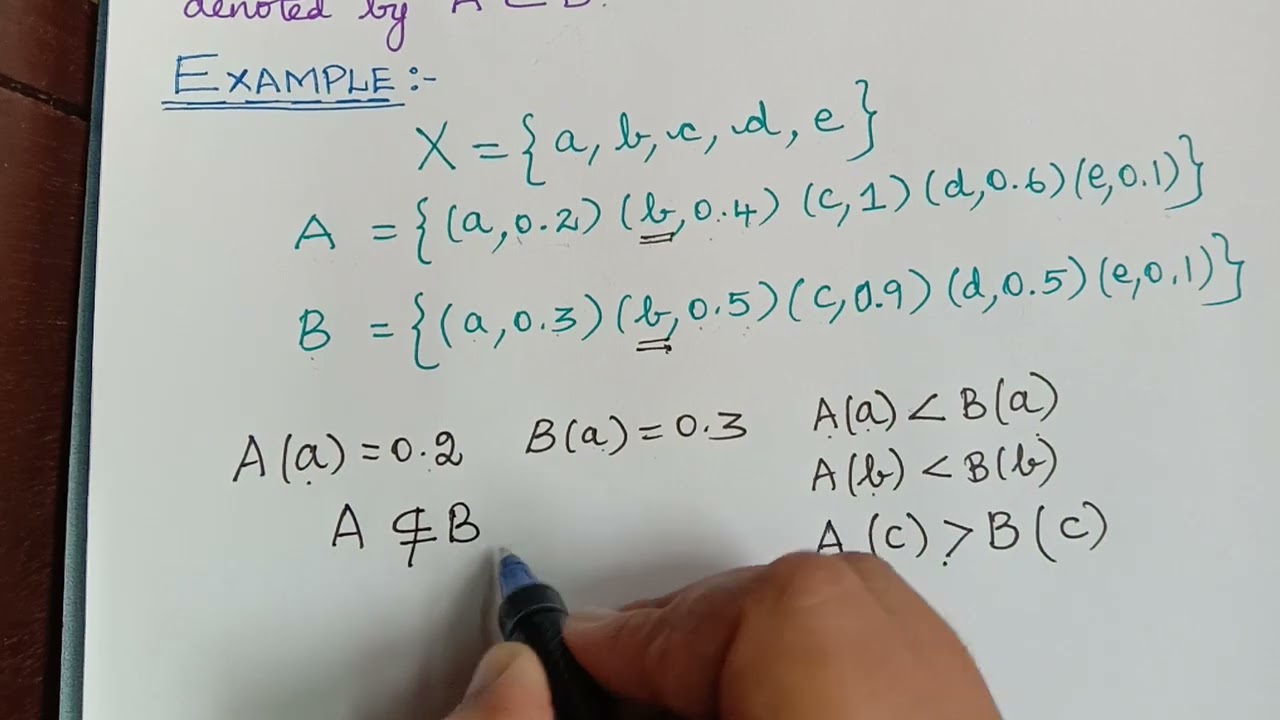 denoted by A ⊂ B.
EXAMPLE:-
X = {a, b, c, d, e}
A = {(a,0.2) (b,0.4) (c,1) (d,0.6) (e,0.1)}
B = {(a,0.3) (b,0.5) (c,0.9) (d,0.5) (e,0.1)}
A(a) = 0.2 B(a) = 0.3 A(a) < B(a)
A(b) < B(b)
A ⊄ B A(c) > B(c)